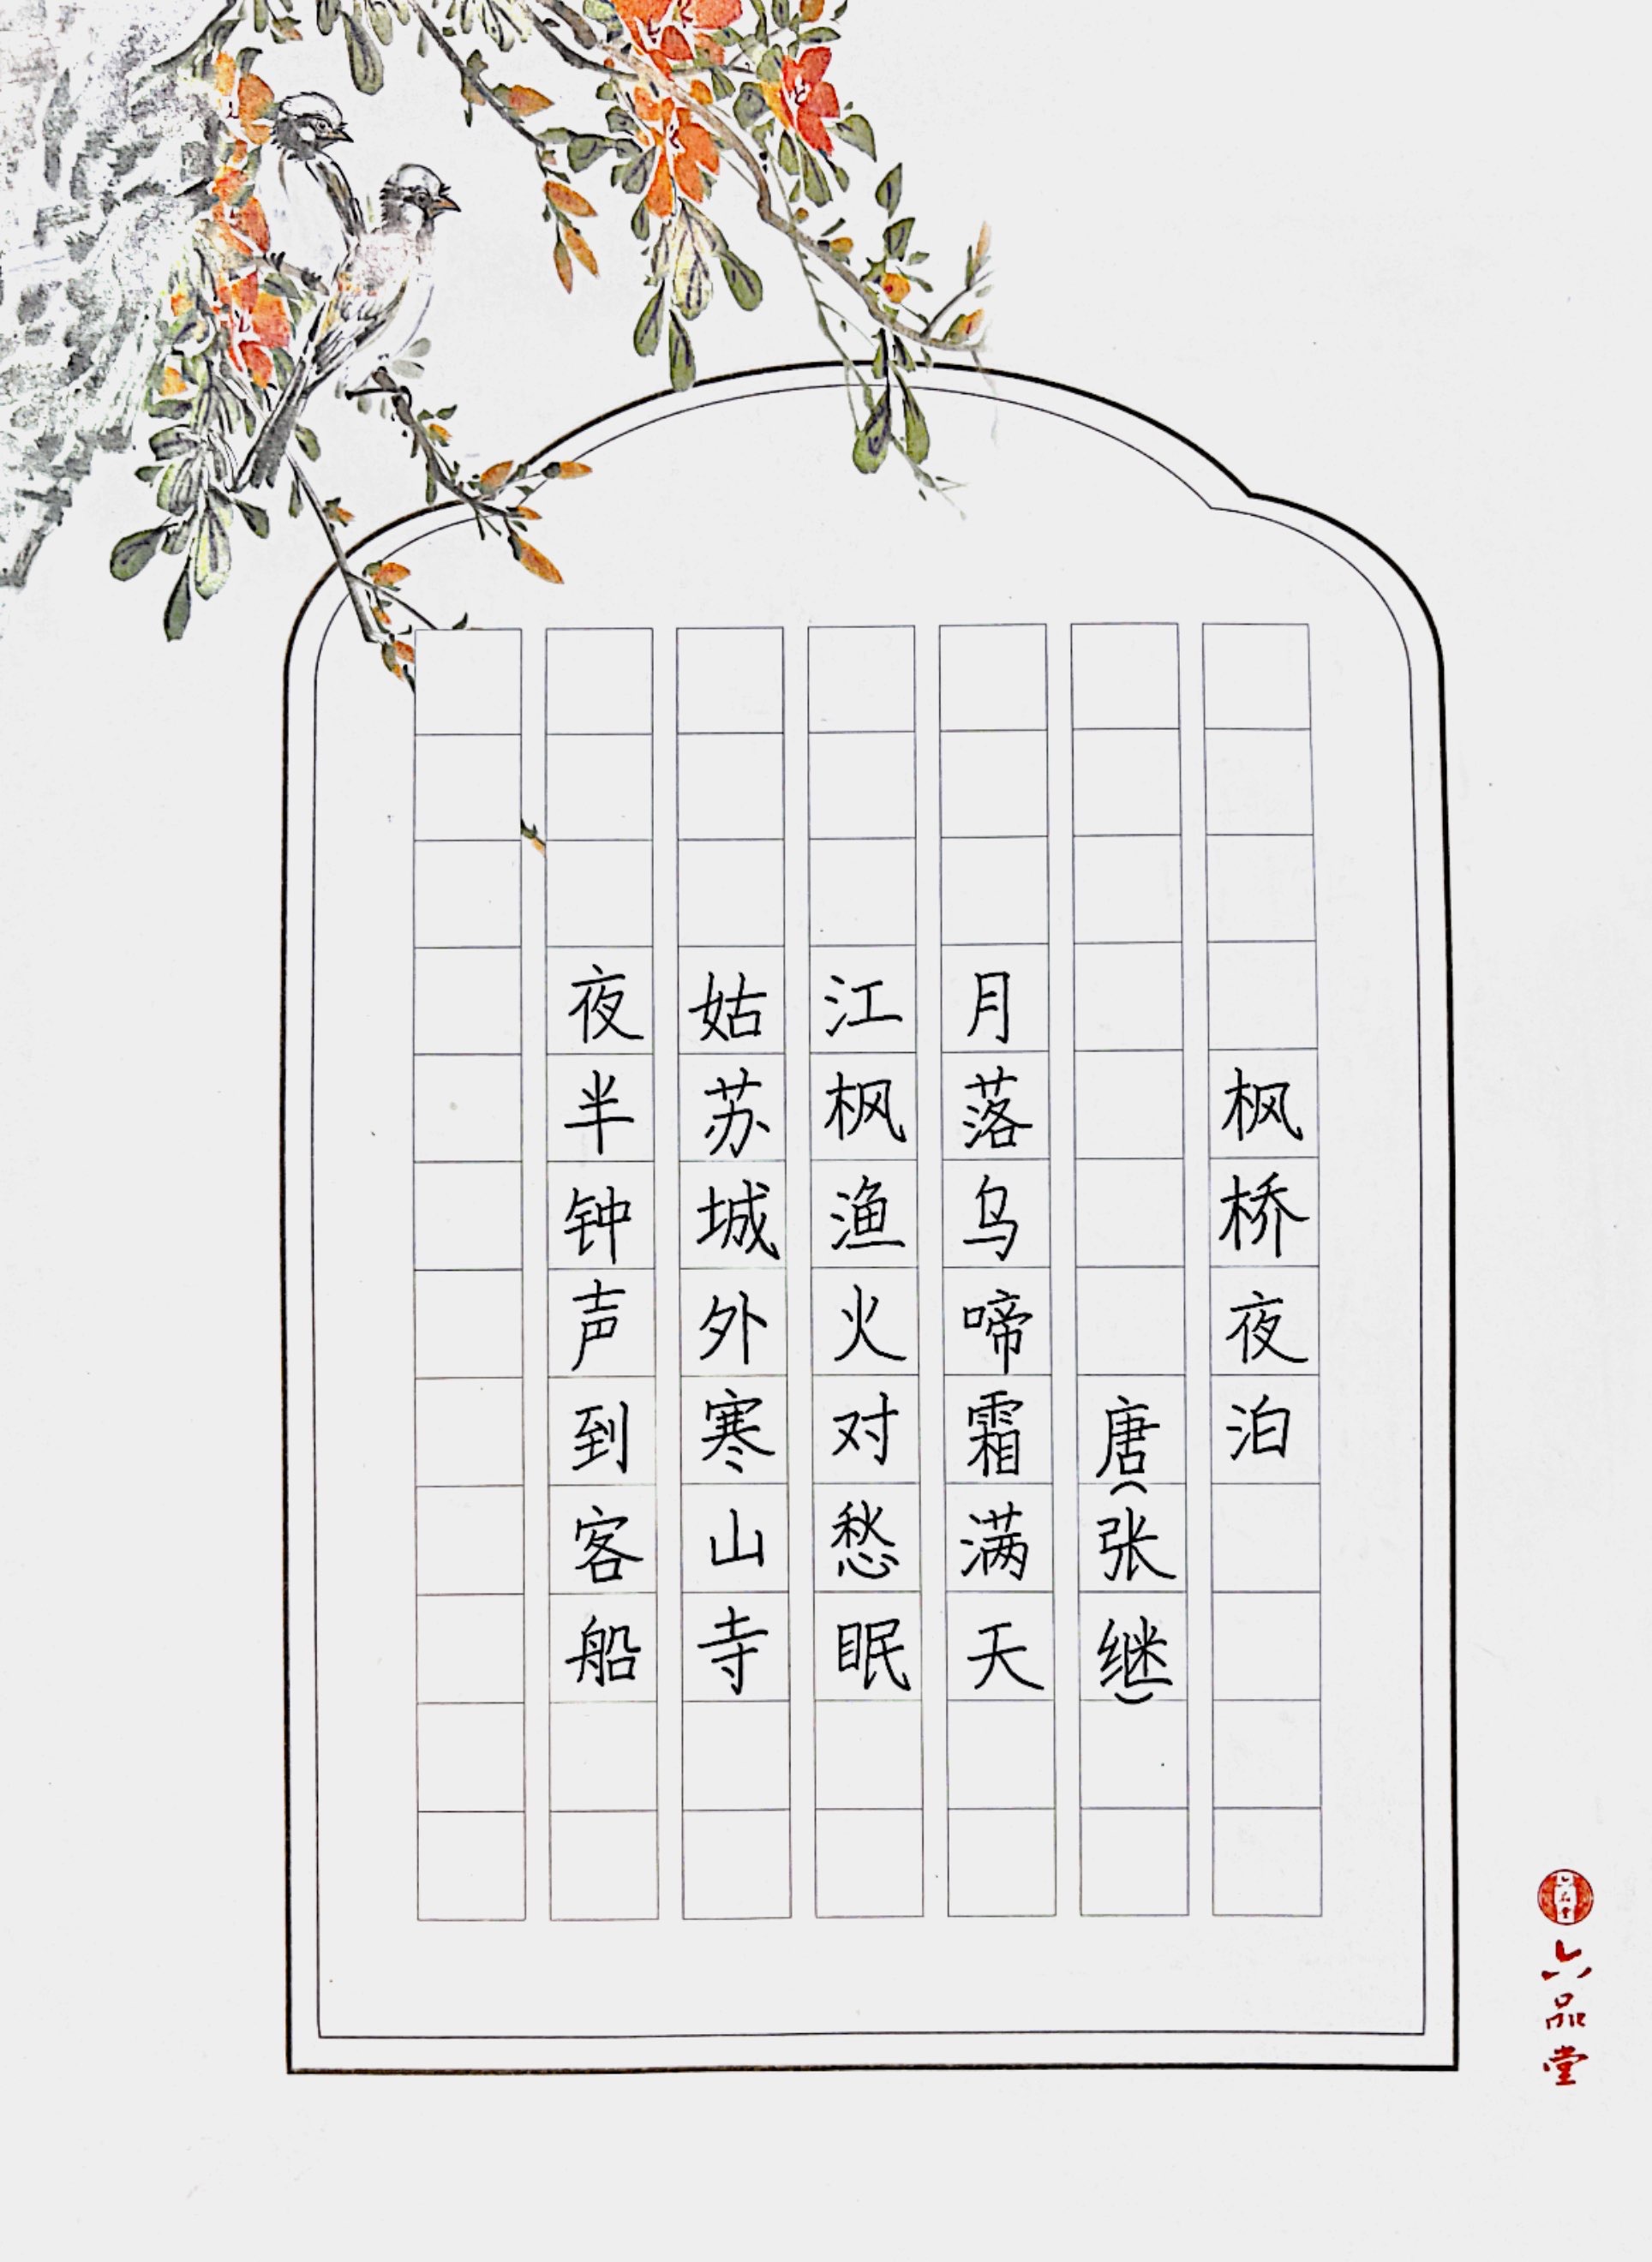 枫桥夜泊
唐(张继)
月落乌啼霜满天
江枫渔火对愁眠
姑苏城外寒山寺
夜半钟声到客船
六品堂